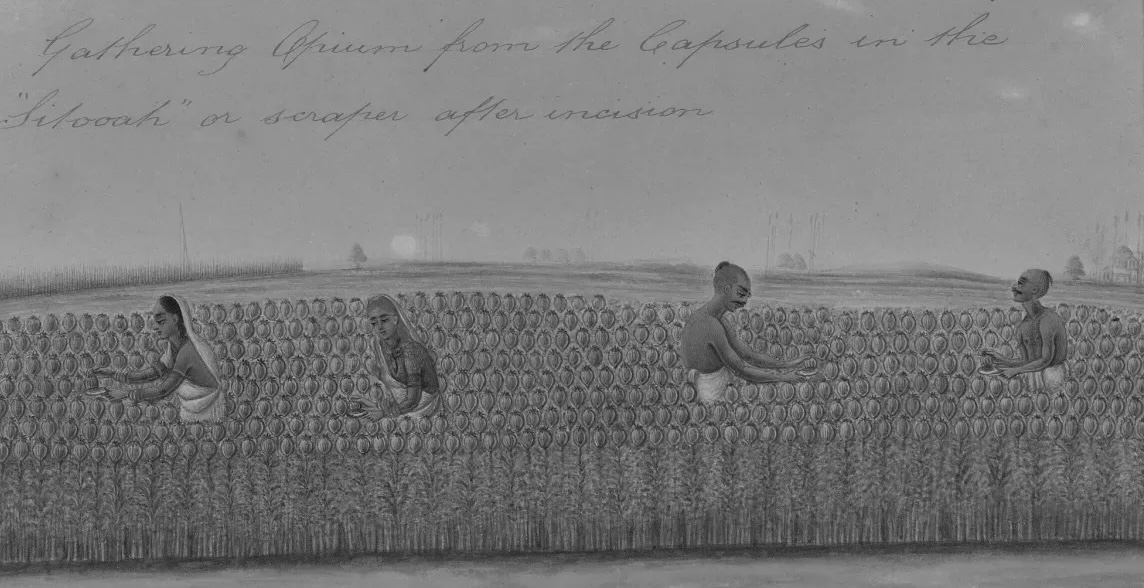 Gathering Opium from the Capsules in the
"Sitooah" or scraper after incision